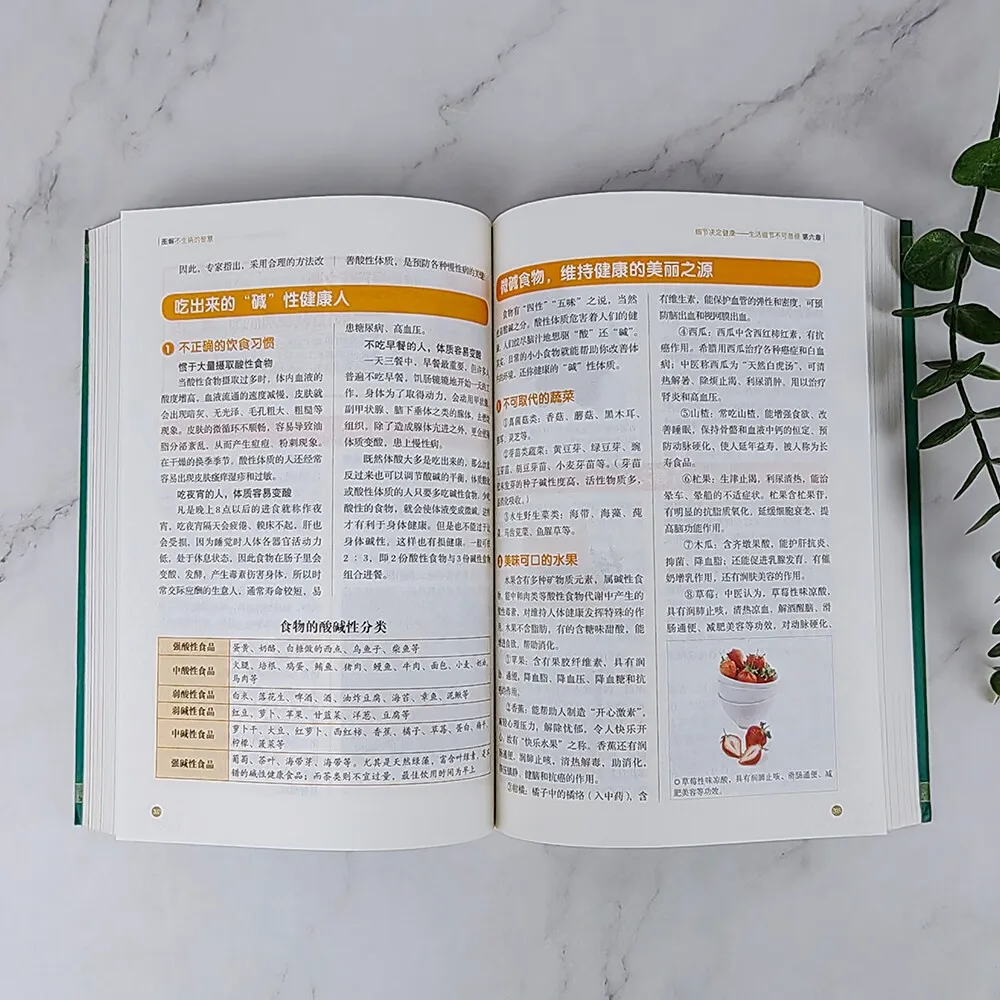 图解不生病的智慧
因此，专家指出，采用合理的方法改
善酸性体质，是预防各种慢性病的关键
吃出来的“碱”性健康人
1 不正确的饮食习惯
惯于大量摄取酸性食物
当酸性食物摄取过多时，体内血液的
酸度增高，血液流通的速度减慢，皮肤就
会出现暗灰、无光泽、毛孔粗大、粗糙等
现象。皮肤的微循环不顺畅，容易导致油
脂分泌紊乱，从而产生痘痘、粉刺现象。
在干燥的换季季节。酸性体质的人还经常
容易出现皮肤瘙痒湿疹和过敏。
吃夜宵的人，体质容易变酸
凡是晚上8点以后的进食就称作夜
宵，吃夜宵隔天会疲倦、赖床不起，肝也
会受损，因为睡觉时人体各器官活动力
低，处于休息状态，因此食物在肠子里会
变酸、发酵，产生毒素伤害身体，所以时
常交际应酬的生意人，通常寿命较短，易
患糖尿病、高血压。
不吃早餐的人，体质容易变酸
一天三餐中，早餐最重要，但许多人
普遍不吃早餐，饥肠辘辘地开始一天的工
作，身体为了取得动力，会动用甲状腺、
副甲状腺、脑下垂体之类的腺体，去燃烧
组织，除了造成腺体亢进之外，更会使得
体质变酸，患上慢性病。
既然体酸大多是吃出来的，那么饮食
反过来也可以调节酸碱的平衡，体质酸性
或酸性体质的人只要多吃碱性食物，少吃
酸性的食物，就会使体液变成微碱，这样
才有利于身体健康。但是也不能过于让
身体碱性，这样也有损健康。一般可按
2∶3，即2份酸性食物与3份碱性食物
组合进餐。
食物的酸碱性分类
强酸性食品 蛋黄、奶酪、白糖做的西点、乌鱼子、柴鱼等
中酸性食品 火腿、培根、鸡蛋、鲔鱼、猪肉、鳗鱼、牛肉、面包、小麦、奶油、
马肉等
弱酸性食品 白米、落花生、啤酒、酒、油炸豆腐、海苔、章鱼、泥鳅等
弱碱性食品 红豆、萝卜、苹果、甘蓝菜、洋葱、豆腐等
中碱性食品 萝卜干、大豆、红萝卜、西红柿、香蕉、橘子、草莓、蛋白、梅干、
柠檬、菠菜等
强碱性食品 葡萄、茶叶、海带芽、海带等。尤其是天然绿藻，富含叶绿素，是不
错的碱性健康食品；而茶类则不宜过量，最佳饮用时间为早上
细节决定健康——生活细节不可忽视 第六章
微碱食物，维持健康的美丽之源
食物有“四性”“五味”之说，当然
也有酸碱之分。酸性体质危害着人们的健
康，人们绞尽脑汁地想驱“酸”还“碱”。
其实，日常的小小食物就能帮助你改善体
内的环境，还你健康的“碱”性体质。
1 不可取代的蔬菜
①真菌菇类：香菇、蘑菇、黑木耳、
银耳、灵芝等。
②芽苗类蔬菜：黄豆芽、绿豆芽、豌
豆芽苗、胡豆芽苗、小麦芽苗等。（芽苗
原来发芽的种子碱性度高，活性物质多，
易消化吸收。）
③水生野生菜类：海带、海藻、莼
菜、马齿苋菜、鱼腥草等。
美味可口的水果
水果含有多种矿物质元素，属碱性食
物，能中和肉类等酸性食物代谢中产生的
酸性毒素，对维持人体健康发挥特殊的作
用。水果不含脂肪，有的含糖味甜酸，能
增进食欲，帮助消化。
①苹果：含有果胶纤维素，具有润
肺、通便、降血脂、降血压、降血糖和抗
癌的作用。
②香蕉：能帮助人制造“开心激素”，
减轻心理压力，解除忧郁，令人快乐开
心，故有“快乐水果”之称。香蕉还有润
肠通便、润肺止咳、清热解毒、助消化、
降压镇静、健脑和抗癌的作用。
③柑橘：橘子中的橘络（入中药），含
有维生素，能保护血管的弹性和密度，可预
防脑出血和视网膜出血。
④西瓜：西瓜中含西红柿红素，有抗
癌作用。希腊用西瓜治疗各种癌症和白血
病；中医称西瓜为“天然白虎汤”，可清
热解暑、除烦止渴、利尿消肿，用以治疗
肾炎和高血压。
⑤山楂：常吃山楂，能增强食欲，改
善睡眠，保持骨骼和血液中钙的恒定、预
防动脉硬化、使人延年益寿，被人称为长
寿食品。
⑥杧果：生津止渴，利尿清热，能治
晕车、晕船的不适症状。杧果含杧果苷，
有明显的抗脂质氧化，延缓细胞衰老，提
高脑功能作用。
⑦木瓜：含齐墩果酸，能护肝抗炎、
抑菌、降血脂；还能促进乳腺发育，有催
奶增乳作用，还有润肤美容的作用。
⑧草莓：中医认为，草莓性味凉酸，
具有润肺止咳，清热凉血，解酒醒脑、滑
肠通便、减肥美容等功效，对动脉硬化、
草莓性味凉酸，具有润肺止咳、滑肠通便、减
肥美容等功效。